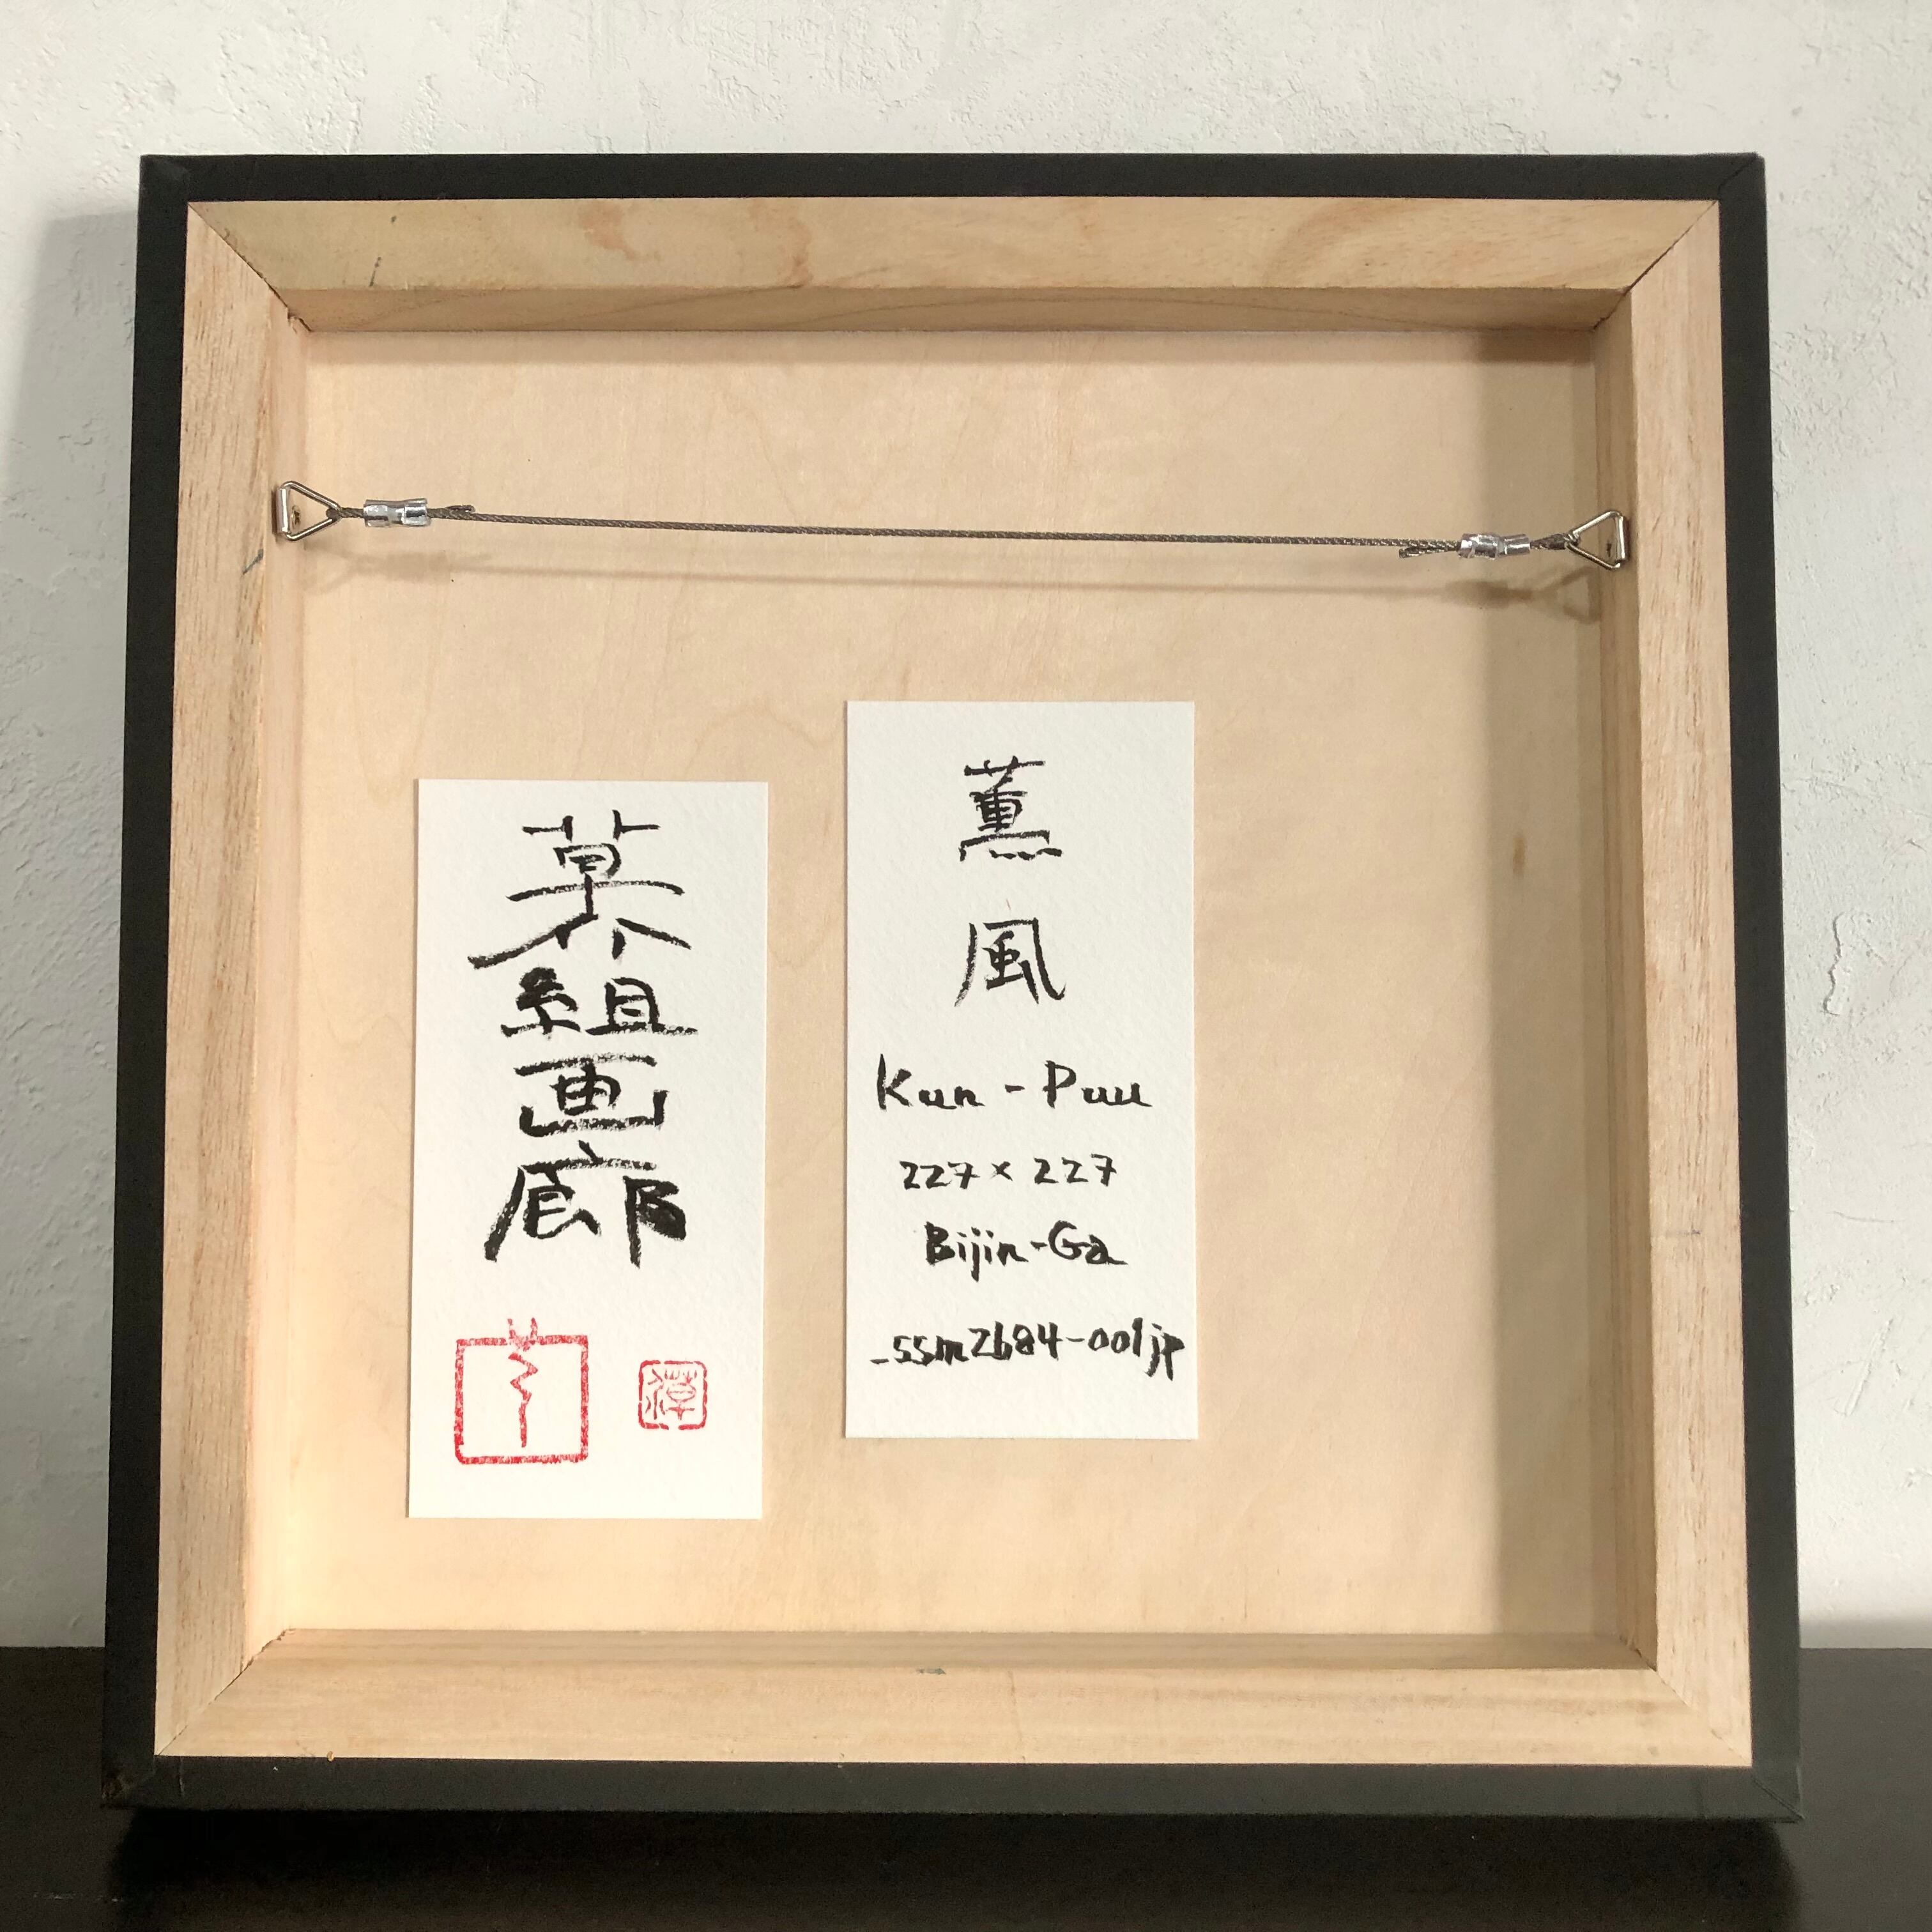 組画廊
薫風
Kun-Puu
227×227
Bijin-Ga
_ssm2684-001jp